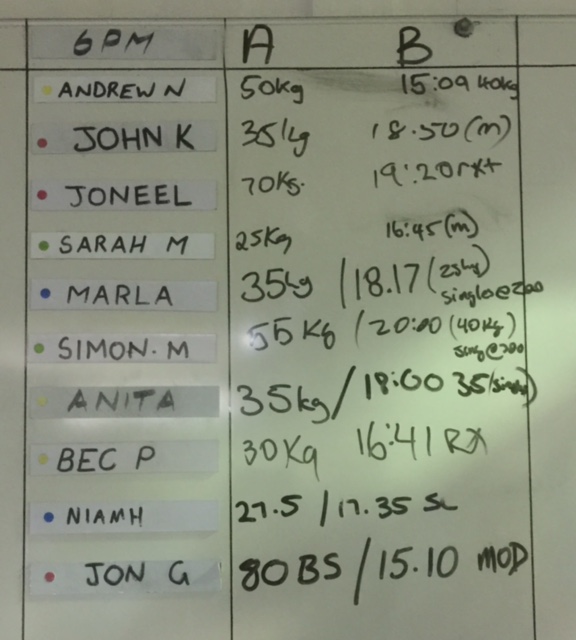 6PM A B
ANDREW N 50kg 15:09 40kg
JOHN K 35kg 18.50 (m)
JONEEL 70Kg. 19:20rx+
SARAH M 25Kg 16:45 (m)
MARLA 35kg / 18.17 (25kg)
single@200
SIMON. M 55 Kg / 20:00 (40kg)
@200
ANITA 35kg / 18:00 35/single)
BEC P 30Kg 16:41 RX
NIAMH 27.5 / 17.35 SC
JON G 80 BS / 15.10 MOD